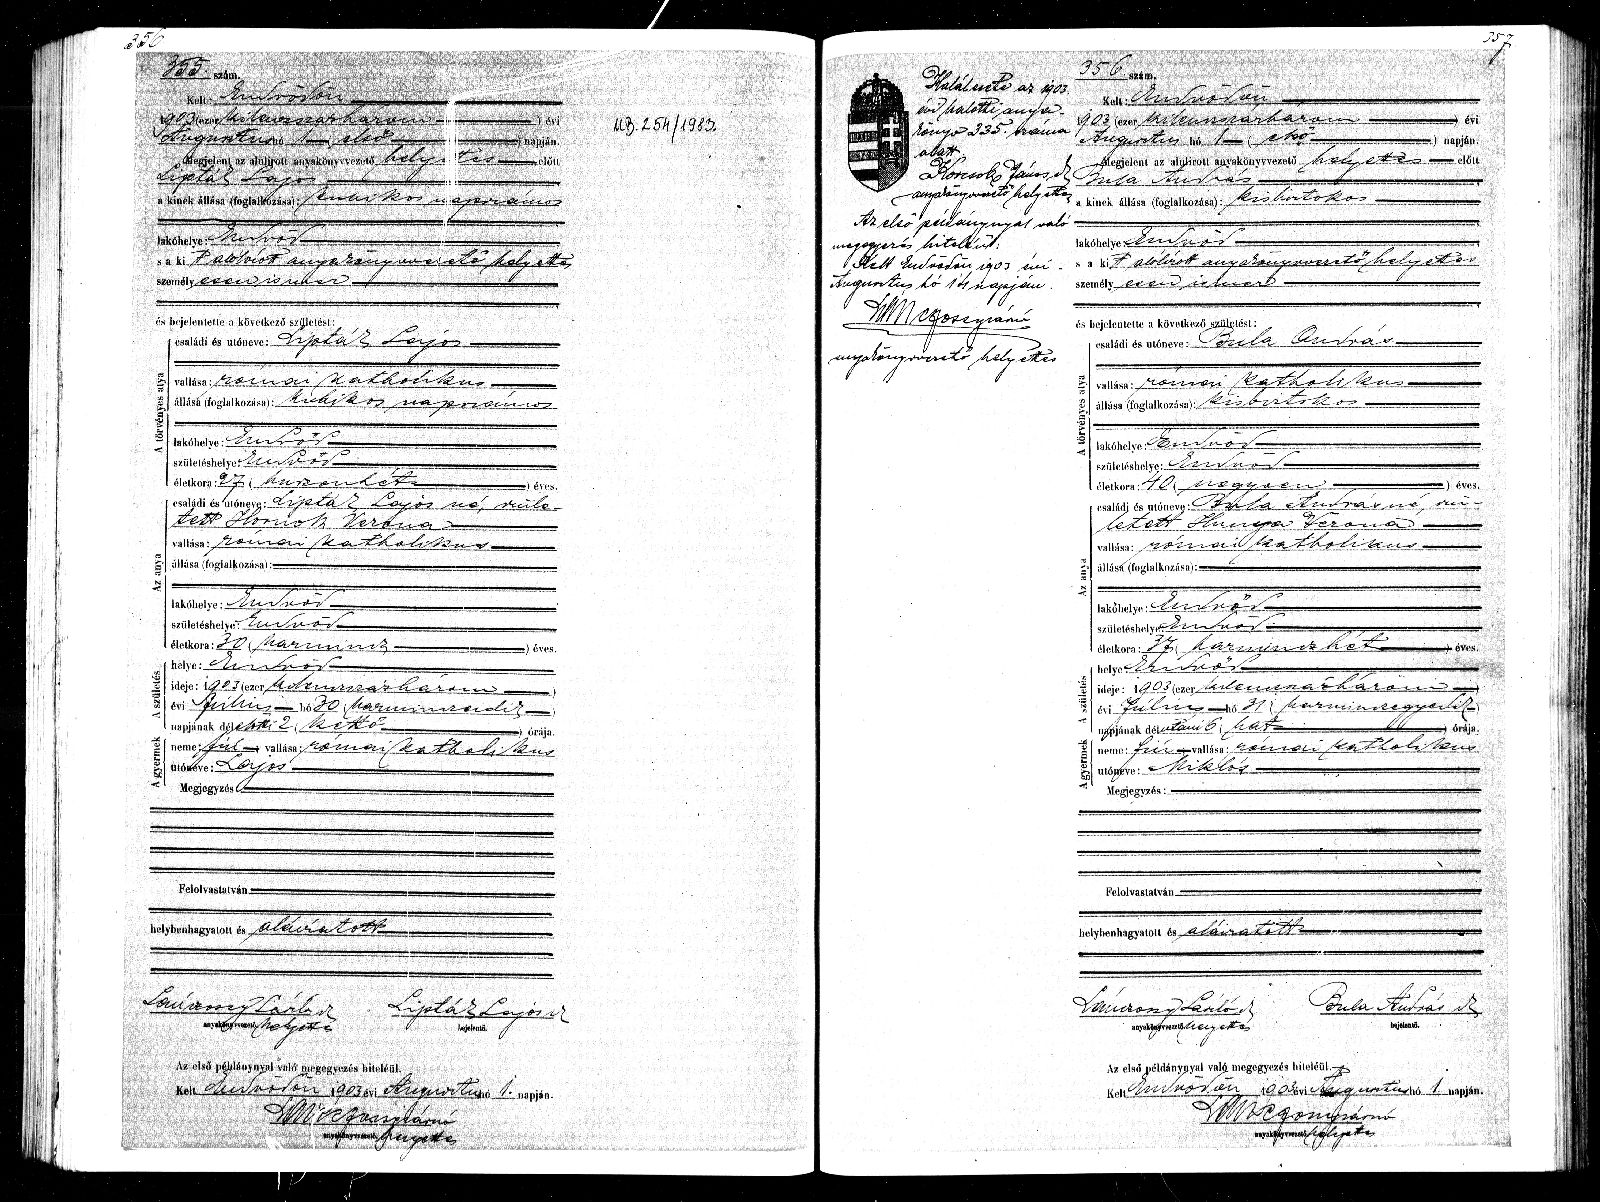 356
355. szám.
Kelt: Endrődön
1903 (ezer kilenczszázhárom) évi
Augusztus hó 1 (első) napján.
Megjelent az alulirott anyakönyvvezető helyettes előtt
Lipták Lajos
a kinek állása (foglalkozása): kubikos napszámos
lakóhelye: Endrőd
s a ki t alólirott anyakönyvvezető helyettes
személyesen ismer
és bejelentette a következő születést:
A törvényes atya
családi és utóneve: Lipták Lajos
vallása: római katholikus
állása (foglalkozása): kubikos napszámos
lakóhelye: Endrőd
születéshelye: Endrőd
életkora: 27 (huszonhét) éves.
Az anya
családi és utóneve: Lipták Lajos né, szüle-
tett Hornok Verona
vallása: római katholikus
állása (foglalkozása):
lakóhelye: Endrőd
születéshelye: Endrőd
életkora: 30 (harmincz) éves.
A születés
helye: Endrőd
ideje: 1903 (ezer kilenczszázhárom)
évi Július hó 30 (harminczadik)
napjának délelőtti 2 (kettő) órája.
A gyermek
neme: fiú vallása: római katholikus
utóneve: Lajos
Megjegyzés:
Felolvastatván
helybenhagyatott és aláiratott
Lipták Lajos sk
anyakönyvvezető helyettes bejelentő.
Az első példánynyal való megegyezés hiteléül.
Kelt Endrődön 1903 évi Augusztus hó 1. napján.
anyakönyvvezető helyettes
MB. 254/1983.
357
Haláleset az 1903
évi halotti anya-
könyv 335. száma
alatt
János sk
anyakönyvvezető helyettes
Az első példánynyal való
megegyezés hiteléül.
Kelt Endrődön 1903 évi
Augusztus hó 14 napján.
anyakönyvvezető helyettes
356 szám.
Kelt: Endrődön
1903 (ezer kilenczszázhárom) évi
Augusztus hó 1 (első) napján.
Megjelent az alulirott anyakönyvvezető helyettes előtt
Bula András
a kinek állása (foglalkozása): kisbirtokos
lakóhelye: Endrőd
s a ki t alólirott anyakönyvvezető helyettes
személyesen ismer
és bejelentette a következő születést:
A törvényes atya
családi és utóneve: Bula András
vallása: római katholikus
állása (foglalkozása): kisbirtokos
lakóhelye: Endrőd
születéshelye: Endrőd
életkora: 40 (negyven) éves.
Az anya
családi és utóneve: Bula Andrásné, szü-
letett Hunya Verona
vallása: római katholikus
állása (foglalkozása):
lakóhelye: Endrőd
születéshelye: Endrőd
életkora: 37 (harminczhét) éves.
A születés
helye: Endrőd
ideje: 1903 (ezer kilenczszázhárom)
évi július hó 31 (harminczegyedik)
napjának délutáni 6 (hat) órája.
A gyermek
neme: fiú vallása: római katholikus
utóneve: Miklós
Megjegyzés:
Felolvastatván
helybenhagyatott és aláiratott
László sk Bula András sk
anyakönyvvezető helyettes bejelentő.
Az első példánynyal való megegyezés hiteléül.
Kelt Endrődön 1903 évi Augusztus hó 1 napján.
anyakönyvvezető helyettes